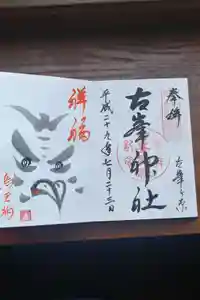 奉拝
古峯ヶ原
古峯神社
平成二十九年七月二十三日
祥福
烏天狗